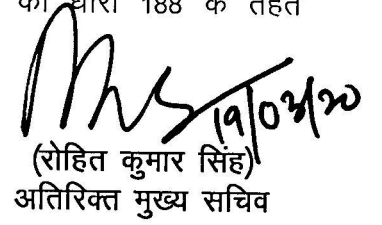 की धारा 188 के तहत
19/03/20
(रोहित कुमार सिंह)
अतिरिक्त मुख्य सचिव